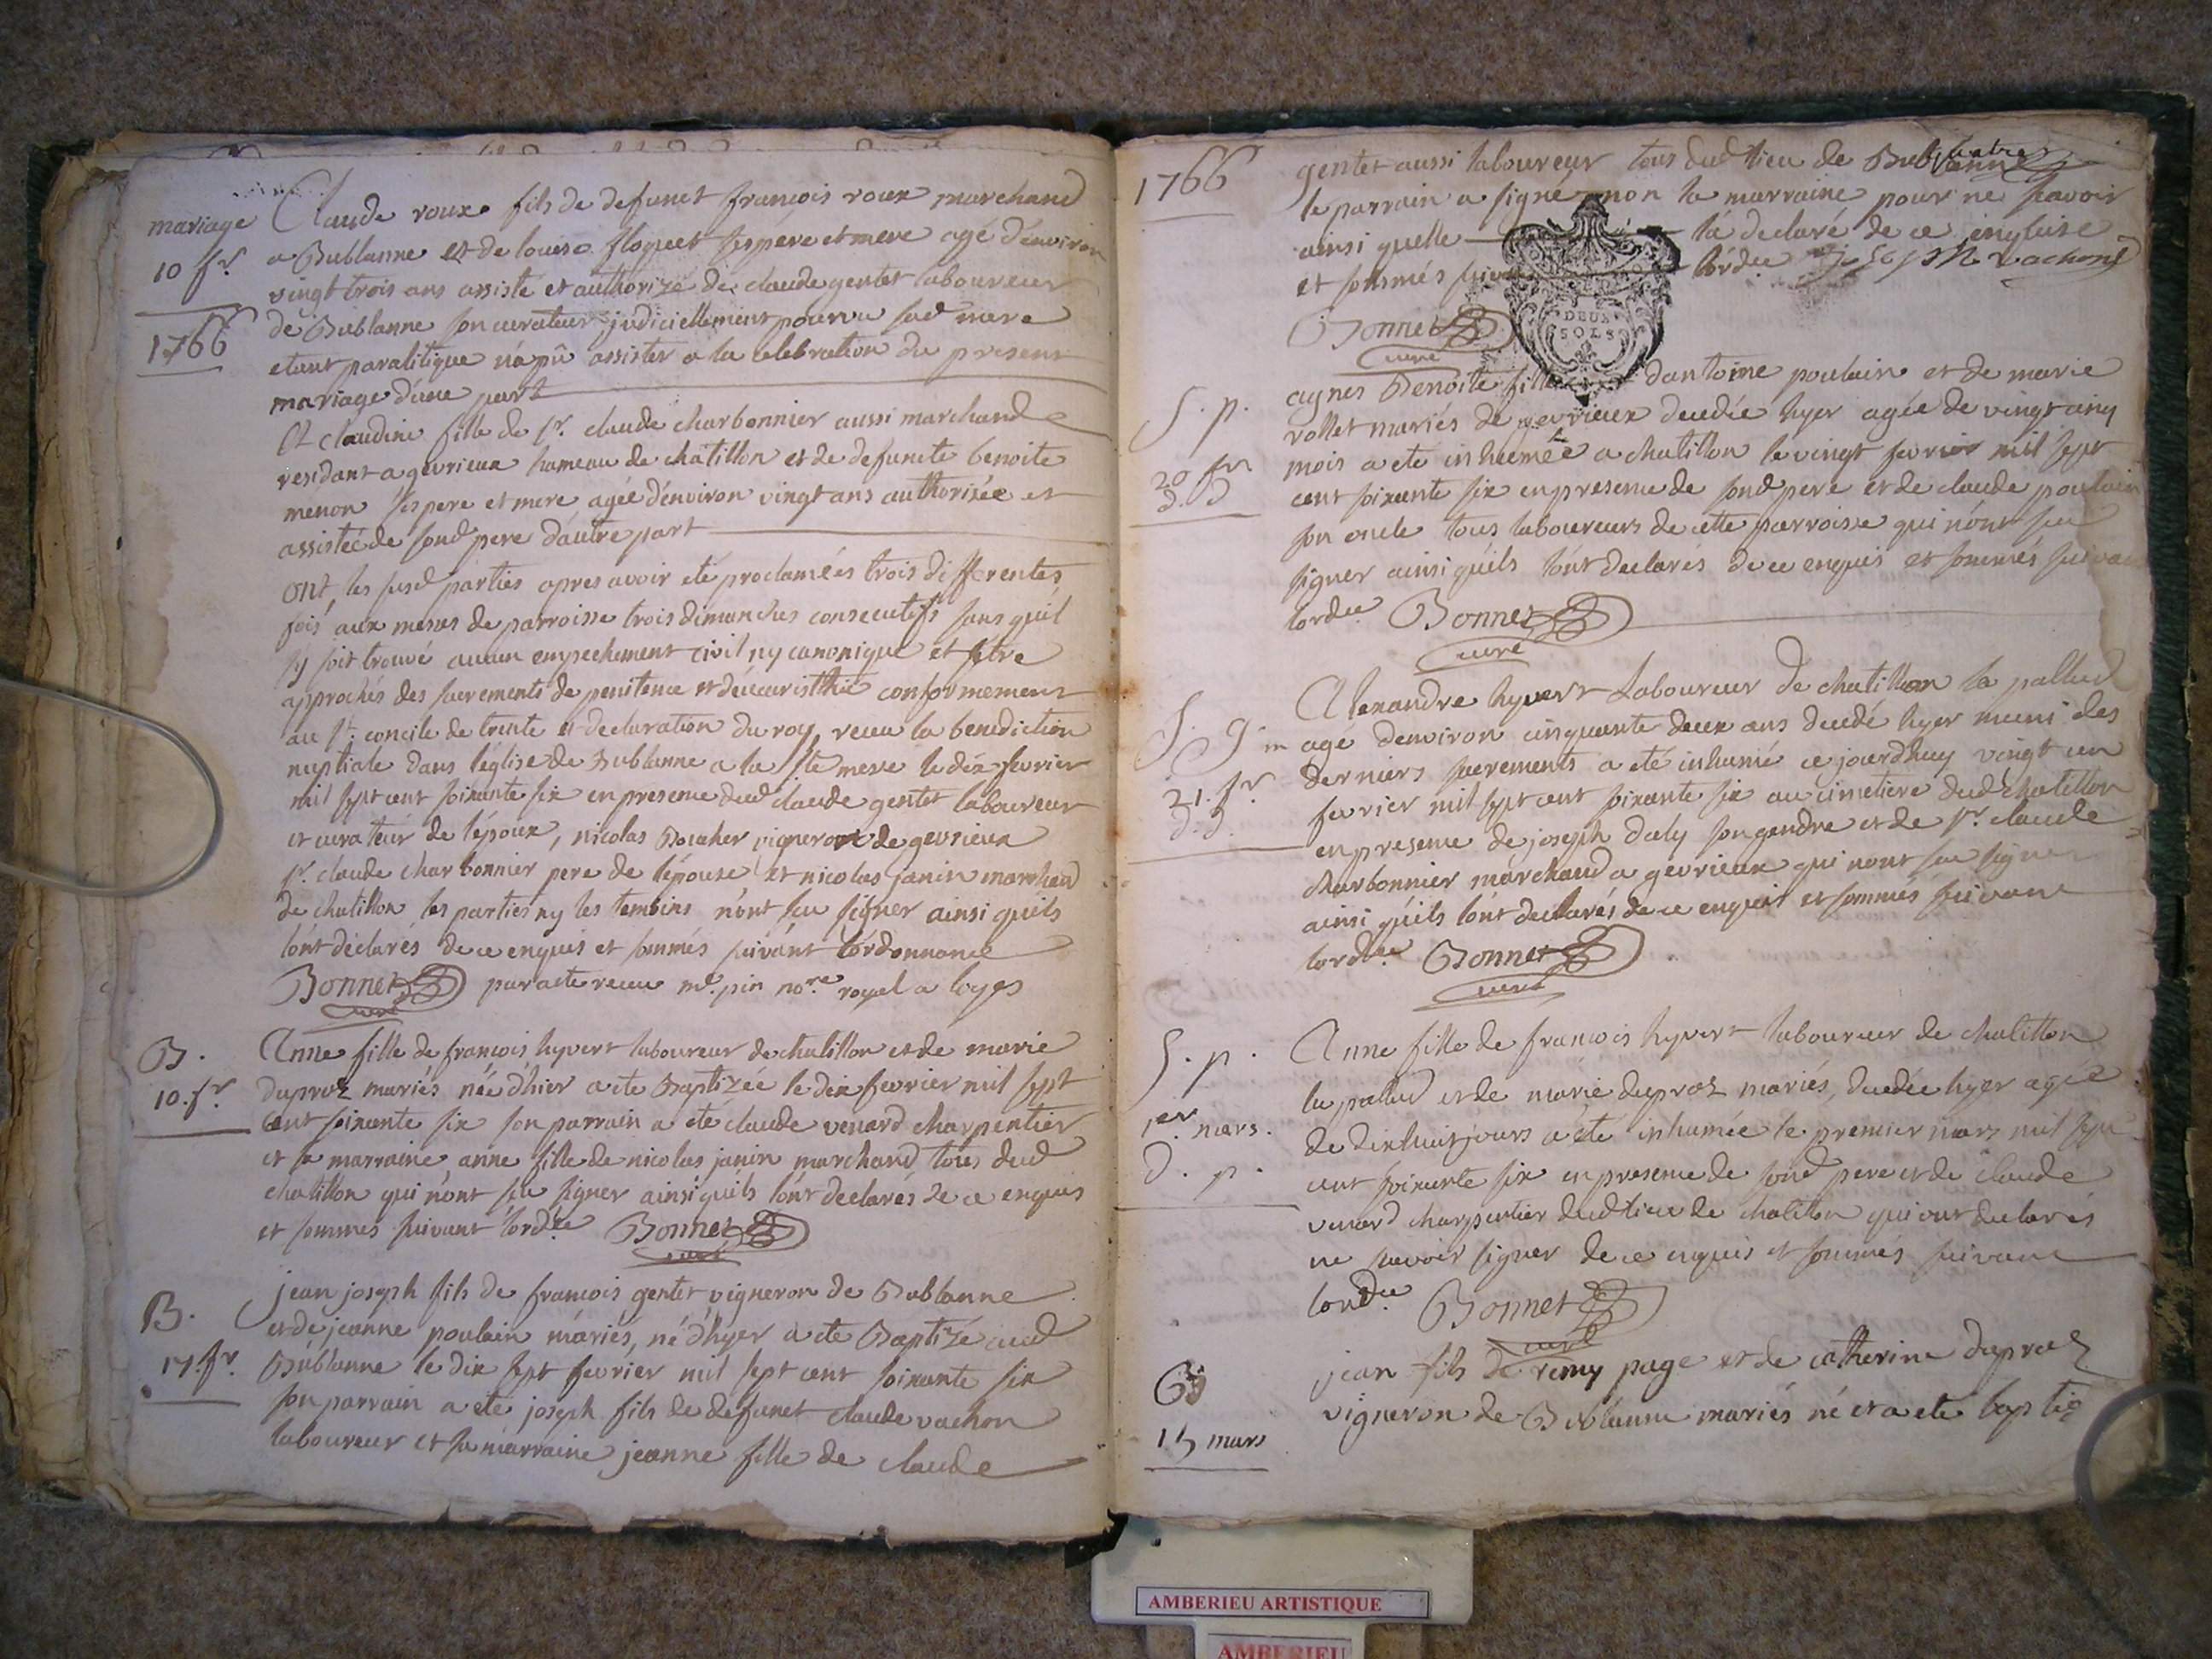 mariage
10 fr.
1766
Claude roux fils de defunct françois roux marchand
a Bublanne et de louise floquet ses pere et mere agé d'environ
vingt trois ans assisté et authorizé de claude gentet laboureur
de Bublanne son curateur judiciellement pourvu sad mere
etant paralitique n'a pû assister a la celebration du present
mariage d'une part
Et claudine fille de sr. claude charbonnier aussi marchand
residant a gevrieux hameau de chatillon et de defuncte benoite
menon ses pere et mere, agée d'environ vingt ans authorisée et
assistée de sond pere d'autre part
ont, les susd parties apres avoir eté proclamées trois differentes
fois aux messes de parroisse trois dimanches consecutifs sans qu'il
s'y soit trouvé aucun empechement civil ny canonique et s'etre
approchés des sacrements de penitence et d'eucaristhie conformement
au st. concile de trente et declaration du roy, receu la benediction
nuptiale dans l'église de Bublanne a la ste messe le dix fevrier
mil sept cent soixante six en presence dud claude gentet laboureur
et curateur de l'époux, nicolas Boucher vigneron de gevrieux
sr. claude charbonnier pere de l'épouse et nicolas janin marchand
de chatillon les parties ny les temoins n'ont scu signer ainsi qu'ils
l'ont déclarés de ce enquis et sommés suivant l'ordonnance
Bonnet par acte receu me. pin nore. royal a loyes
curé
B.
10. fr.
Anne fille de françois hyvert laboureur de chatillon et de marie
duproz mariés née d'hier a ete Baptizée le dix fevrier mil sept
cent soixante six son parrain a ete claude venard charpentier
et sa marraine anne fille de nicolas janin marchand, tous dud
chatillon qui n'ont scu signer ainsi qu'ils l'ont declarés de ce enquis
et sommés suivant l'ordce Bonnet
curé
B.
17. fr.
jean joseph fils de françois gentet vigneron de Bublanne
et de jeanne poulain mariés, né d'hyer a ete Baptizé aud
Bublanne le dix sept fevrier mil sept cent soixante six
son parrain a eté joseph fils de defunct claude vachon
laboureur et sa marraine jeanne fille de claude
1766
gentet aussi laboureur tous dud lieu de Bublanne
le parrain a signé non la marraine pour ne scavoir
ainsi quelle la declaré de ce
et sommés l'ordce joseph vachon
DEUX
SOLS
Bonnet
curé
S. p.
20 fr
agnes Benoite fille d'antoine poulain et de marie
rollet mariés de gevrieux decedée hyer agée de vingt cinq
mois a eté inhumée a chatillon le vingt fevrier mil sept
cent soixante six en presence de sond pere et de claude poulain
son oncle tous laboureurs de cette parroisse qui n'ont scu
signer ainsi qu'ils l'ont declarés de ce enquis et sommés suivant
l'ordce. Bonnet
curé
21. fr.
Alexandre hyvert Laboureur de chatillon la pallud
agé d'environ cinquante deux ans decedé hyer muni des
derniers sacrements a eté inhumé ce jourdhuy vingt un
fevrier mil sept cent soixante six au cimetiere dud chatillon
en presence de joseph daly son gendre et de sr. claude
charbonnier marchand a gevrieux qui nont scu signer
ainsi qu'ils l'ont declarés de ce enquis et sommés suivant
l'ordce. Bonnet
curé
S. p.
1er. mars.
Anne fille de francois hyvert laboureur de chatillon
la pallud et de marie duproz mariés, decedée hyer agée
de dixhuit jours a été inhumée le premier mars mil sept
cent soixante six en presence de sond pere et de claude
venard charpentier dud lieu de chatillon qui ont declarés
ne scavoir signer de ce enquis et sommés suivant
l'ordce. Bonnet
curé
B
15 mars
jean fils de remy page et de catherine duproz
vigneron de Bublanne mariés né et a ete baptizé
AMBERIEU ARTISTIQUE
AMBERIEU